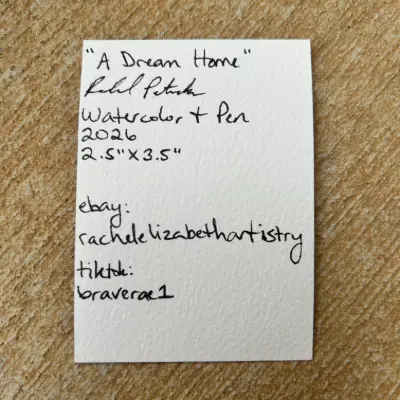 "A Dream Home"
Watercolor + Pen
2026
2.5"X3.5"
ebay:
rachelelizabethartistry
tiktok:
braverae1